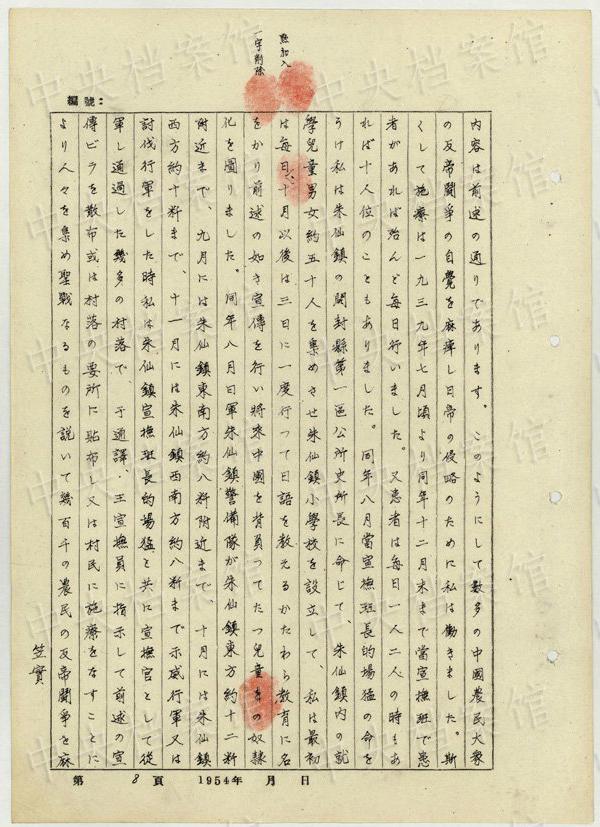 點加入
一字削除
編號：
内容は前述の通りであります。このようにして数多の中國農民大衆
の反帝闘爭の自覺を麻痺し日帝の侵略のために私は働きました。斯
くして施療は一九三九年七月頃より同年十二月末まで當宣撫班で患
者があれば殆んど毎日行いました。又患者は毎日一人二人の時もあ
れば十人位のこともありました。同年八月當宣撫班長的場猛の命を
うけ私は朱仙鎮の開封縣第一區公所史所長に命じて、朱仙鎮内の就
學兒童男女約五十人を集めさせ朱仙鎮小學校を設立して、私は最初
は毎日、十月以後は三日に一度行って日語を教えるかたわら教育に名
をかり前述の如き宣傳を行い將來中國を背負ってたつ兒童の奴隷
化を圖りました。同年八月日軍朱仙鎮警備隊が朱仙鎮東方約十二粁
附近まで、九月には朱仙鎮東南方約八粁附近まで、十月には朱仙鎮
西方約十粁まで、十一月には朱仙鎮西南方約八粁まで示威行軍又は
討伐行軍をした時私は朱仙鎮宣撫班長的場猛と共に宣撫官として從
軍し通過した幾多の村落で、于通譯、王宣撫員に指示して前述の宣
傳ビラを散布或は村落の要所に貼布し又は村民に施療をなすことに
より人々を集め聖戰なるものを説いて幾百千の農民の反帝闘爭を麻
笠實
第 8 頁 1954年 月 日
中央档案馆